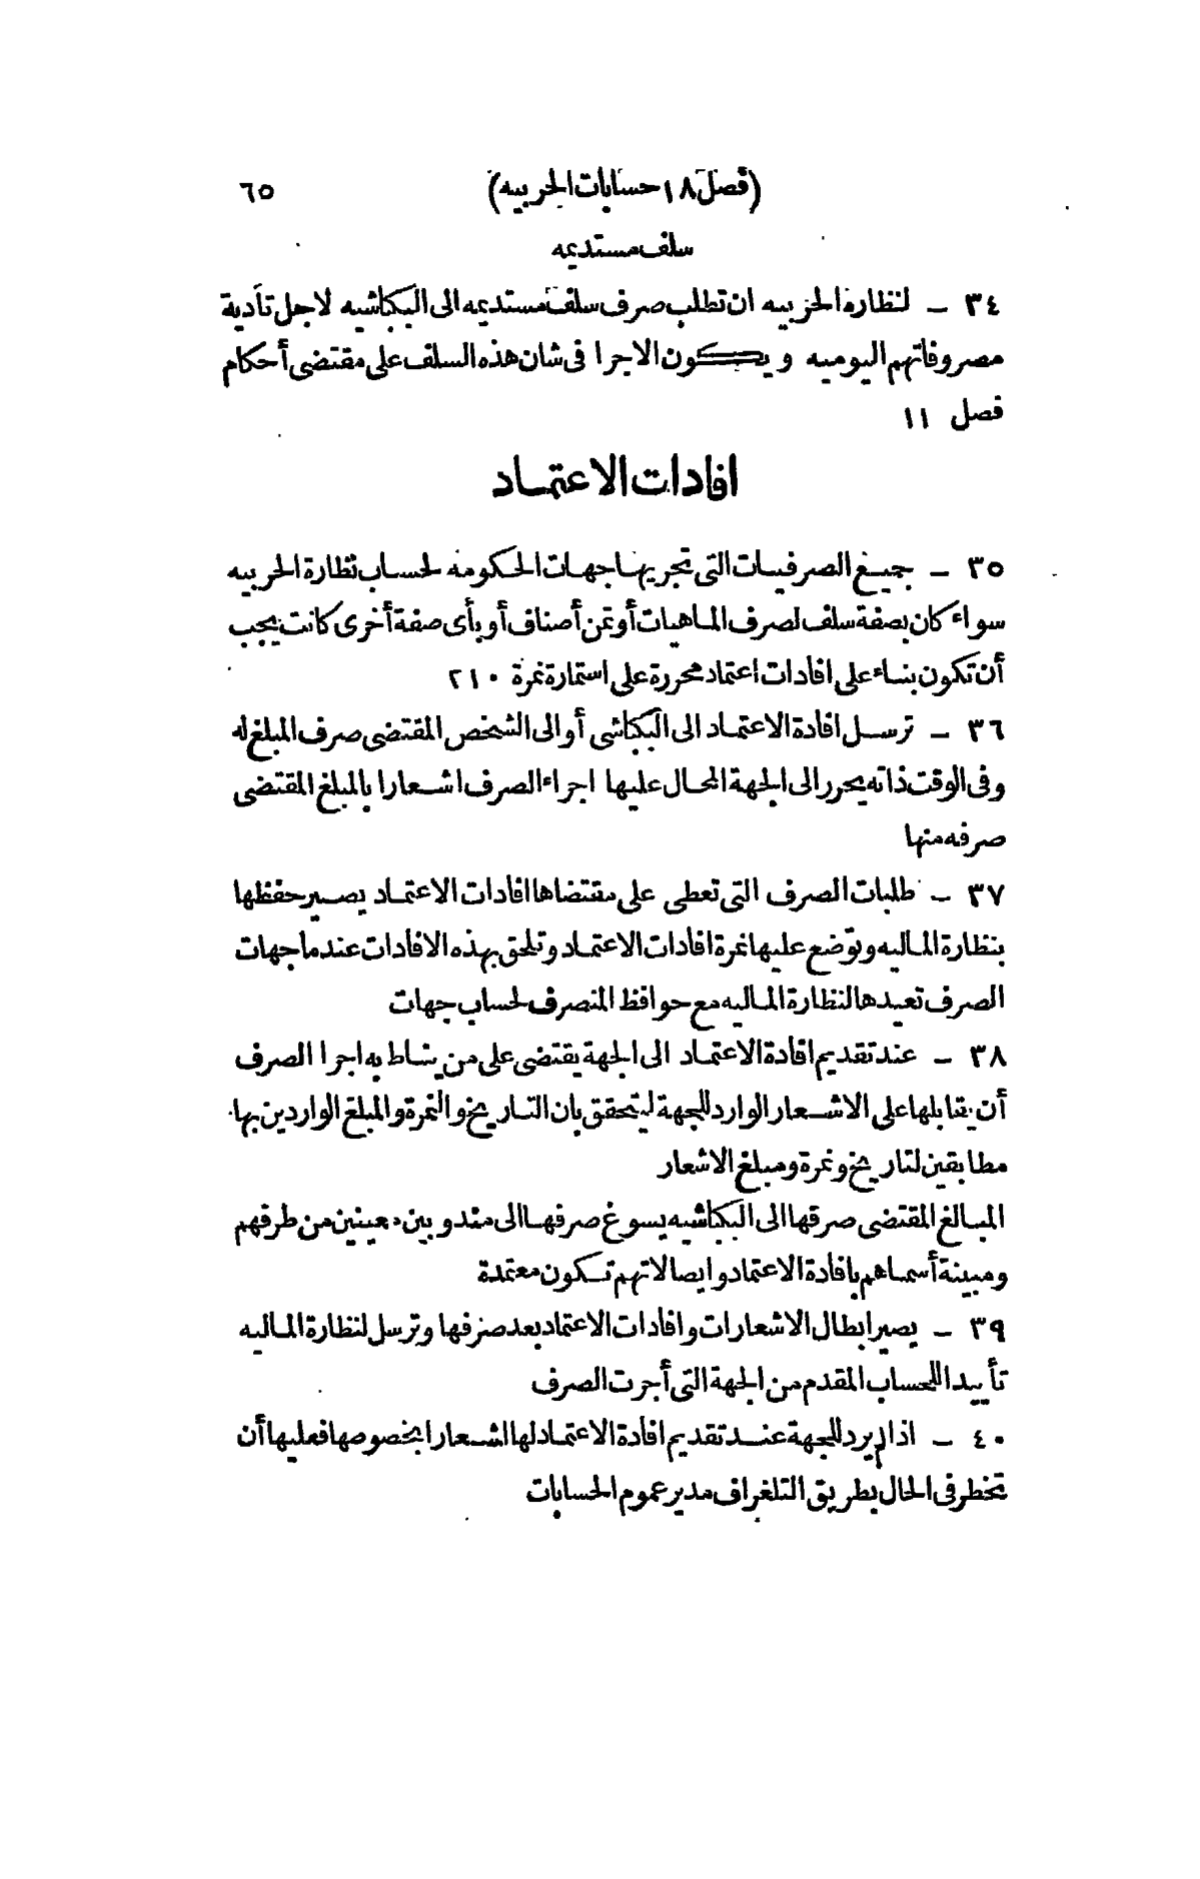 (فصل ١٨ حسابات الحربيه) ٦٥
سلف مستديمه
٣٤ - لنظارة الحربيه ان تطلب صرف سلف مستديمه الى البكباشيه لاجل تأدية
مصروفاتهم اليوميه ويكون الاجرا فى شان هذه السلف على مقتضى أحكام
فصل ١١
افادات الاعتماد
٣٥ - جميع الصرفيات التى تجريها جهات الحكومه لحساب نظارة الحربيه
سواء كان بصفة سلف لصرف الماهيات أو ثمن أصناف أو بأى صفة أخرى كانت يجب
أن تكون بناء على افادات اعتماد محررة على استمارة نمرة ٢١٠
٣٦ - ترسل افادة الاعتماد الى البكباشى أو الى الشخص المقتضى صرف المبلغ له
وفى الوقت ذاته يحرر الى الجهة المحال عليها اجراء الصرف اشعارا بالمبلغ المقتضى
صرفه منها
٣٧ - طلبات الصرف التى تعطى على مقتضاها افادات الاعتماد يصير حفظها
بنظارة الماليه وتوضع عليها نمرة افادات الاعتماد وتلحق بهذه الافادات عندما جهات
الصرف تعيدها لنظارة الماليه مع حوافظ المنصرف لحساب جهات
٣٨ - عند تقديم افادة الاعتماد الى الجهة يقتضى على من يناط به اجرا الصرف
أن يقابلها على الاشعار الوارد للجهة ليتحقق بان التاريخ والنمرة والمبلغ الواردين بها
مطابقين لتاريخ ونمرة ومبلغ الاشعار
المبالغ المقتضى صرفها الى البكباشيه يسوغ صرفها الى مندوبين معينين من طرفهم
ومبينة أسماهم بافادة الاعتماد وايصالاتهم تكون معتمدة
٣٩ - يصير ابطال الاشعارات وافادات الاعتماد بعد صرفها وترسل لنظارة الماليه
تأييدا للحساب المقدم من الجهة التى أجرت الصرف
٤٠ - اذا لم يرد للجهة عند تقديم افادة الاعتماد لها اشعارا بخصوصها فعليها أن
تخطر فى الحال بطريق التلغراف مدير عموم الحسابات